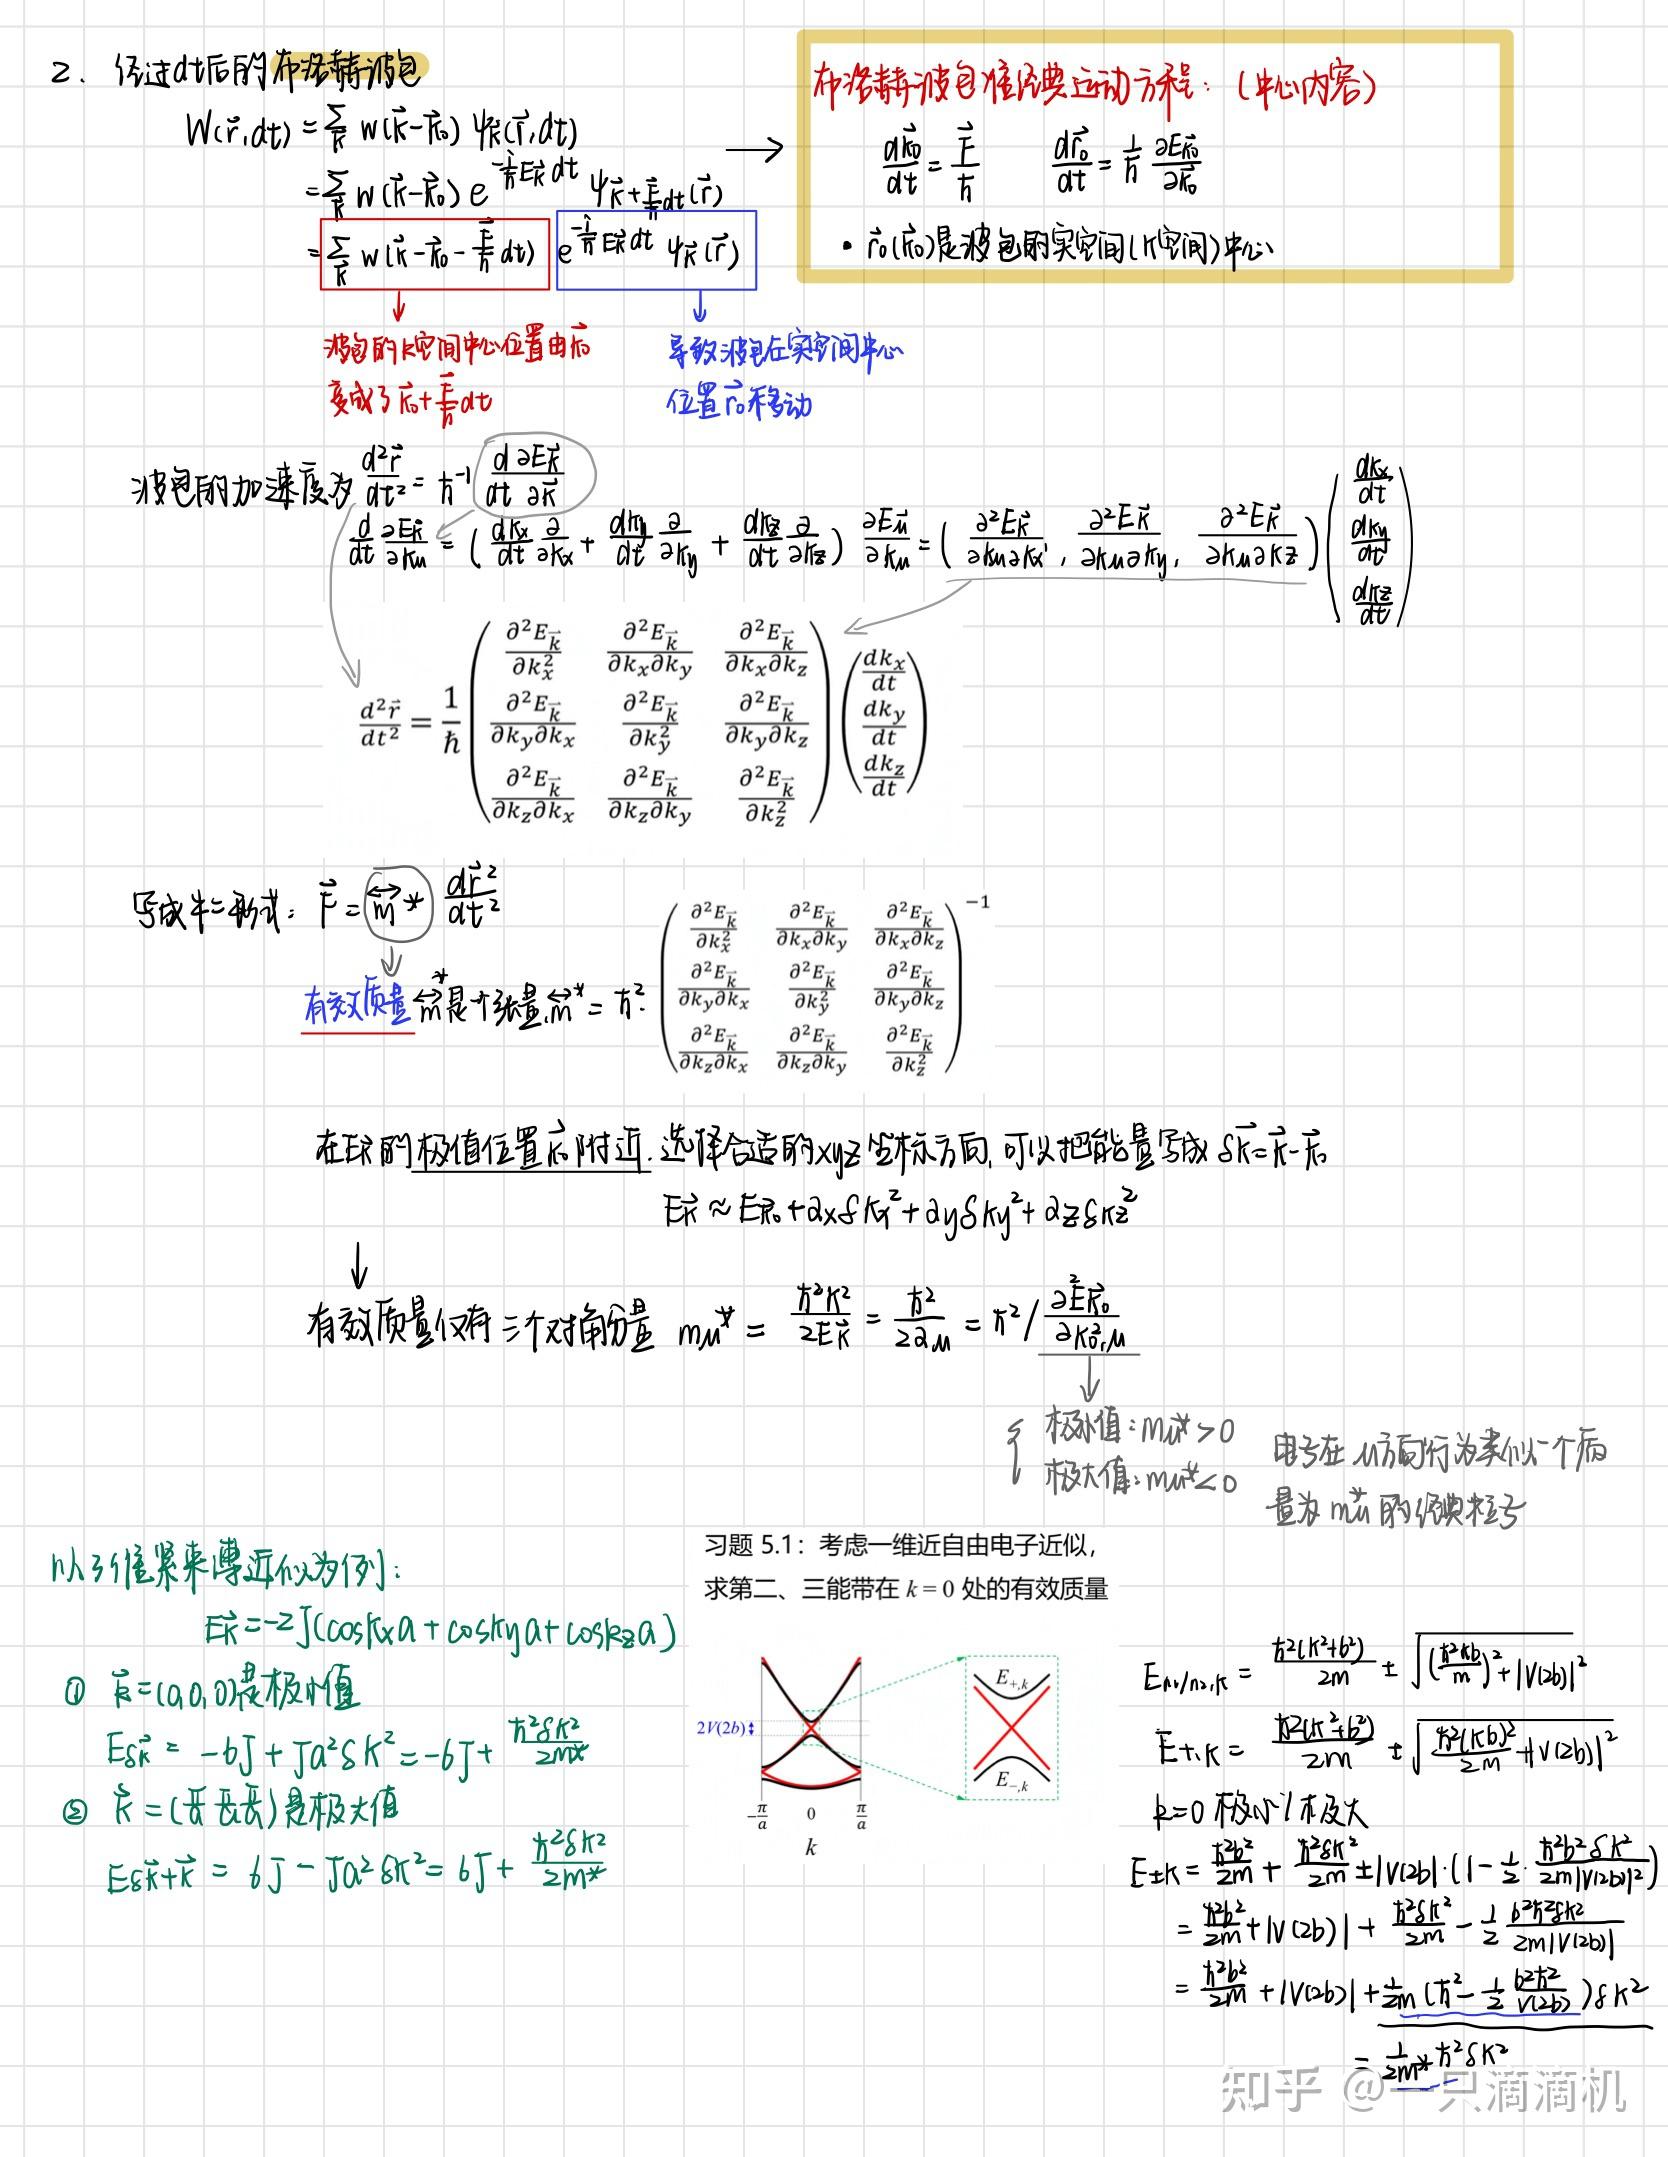 2. 经过dt后的布洛赫波包
W(r⃗,dt) = Σ_k⃗ w(k⃗-k⃗₀) ψ_k⃗(r⃗,dt)
= Σ_k⃗ w(k⃗-k⃗₀) e^{-i/ħ E_k⃗ dt} ψ_{k⃗+F⃗/ħ dt}(r⃗)
= Σ_k⃗ w(k⃗-k⃗₀-F⃗/ħ dt) e^{-i/ħ E_k⃗ dt} ψ_k⃗(r⃗)
波包的k空间中心位置由k⃗₀
变成了k⃗₀+F⃗/ħ dt
导致波包在实空间中心
位置r⃗₀移动
→
布洛赫波包准经典运动方程:(中心内容)
dk⃗₀/dt = F⃗/ħ dr⃗₀/dt = 1/ħ ∂E_k⃗₀/∂k⃗₀
• r⃗₀(k⃗₀)是波包的实空间(k空间)中心
波包的加速度为 d²r⃗/dt² = ħ⁻¹ d/dt ∂E_k⃗/∂k⃗
d/dt ∂E_k⃗/∂k_μ = (dk_x/dt ∂/∂k_x + dk_y/dt ∂/∂k_y + dk_z/dt ∂/∂k_z) ∂E_μ⃗/∂k_μ = (∂²E_k⃗/∂k_μ∂k_x, ∂²E_k⃗/∂k_μ∂k_y, ∂²E_k⃗/∂k_μ∂k_z) (dk_x/dt dk_y/dt dk_z/dt)
d²r⃗/dt² = 1/ħ
(∂²E_k⃗/∂k_x² ∂²E_k⃗/∂k_x∂k_y ∂²E_k⃗/∂k_x∂k_z) (dk_x/dt)
(∂²E_k⃗/∂k_y∂k_x ∂²E_k⃗/∂k_y² ∂²E_k⃗/∂k_y∂k_z) (dk_y/dt)
(∂²E_k⃗/∂k_z∂k_x ∂²E_k⃗/∂k_z∂k_y ∂²E_k⃗/∂k_z²) (dk_z/dt)
写成牛二形式: F⃗ = m⃡* dr⃗²/dt²
有效质量 m⃡* 是个张量, m⃡* = ħ²·
(∂²E_k⃗/∂k_x² ∂²E_k⃗/∂k_x∂k_y ∂²E_k⃗/∂k_x∂k_z)
(∂²E_k⃗/∂k_y∂k_x ∂²E_k⃗/∂k_y² ∂²E_k⃗/∂k_y∂k_z)
(∂²E_k⃗/∂k_z∂k_x ∂²E_k⃗/∂k_z∂k_y ∂²E_k⃗/∂k_z²)⁻¹
在E_k⃗的极值位置k⃗₀附近,选择合适的xyz坐标方向,可以把能量写成 δk⃗=k⃗-k⃗₀
E_k⃗ ≈ E_k⃗₀+a_xδk_x²+a_yδk_y²+a_zδk_z²
↓
有效质量仅有三个对角分量 m_μ* = ħ²k²/2E_k⃗ = ħ²/2a_μ = ħ²/ ∂²E_k⃗₀/∂k²₀,μ
极小值: m_μ*>0
极大值: m_μ*<0
电子在μ方向行为类似一个质
量为m_μ*的经典粒子
以3维紧束缚近似为例:
E_k⃗ = -2J(cosk_xa+cosk_ya+cosk_za)
① k⃗=(0,0,0)是极小值
E_δk⃗ = -6J+Ja²δk² = -6J+ ħ²δk²/2m*
② k⃗=(π/a π/a π/a)是极大值
E_δk⃗+k⃗ = 6J-Ja²δk² = 6J+ ħ²δk²/2m*
习题 5.1:考虑一维近自由电子近似,
求第二、三能带在 k = 0 处的有效质量
2V(2b)
-π/a 0 π/a
k
E_+,k
E_-,k
E_n₁/n₂,k = ħ²(k²+b²)/2m ± √((ħ²kb/m)²+|V(2b)|²)
E_±,k = ħ²(k²+b²)/2m ± √(ħ²(kb)²/2m+|V(2b)|²)
k=0 极小/极大
E_±k = ħ²b²/2m + ħ²δk²/2m ± |V(2b)|·(1-1/2·ħ²b²δk²/2m|V(2b)|²)
= ħ²b²/2m+|V(2b)|+ ħ²δk²/2m - 1/2 b²ħ²δk²/2m|V(2b)|
= ħ²b²/2m+|V(2b)|+1/2m(ħ²-1/2 b²ħ²/V(2b))δk²
= 1/2m* ħ²δk²
知乎 @一只滴滴机